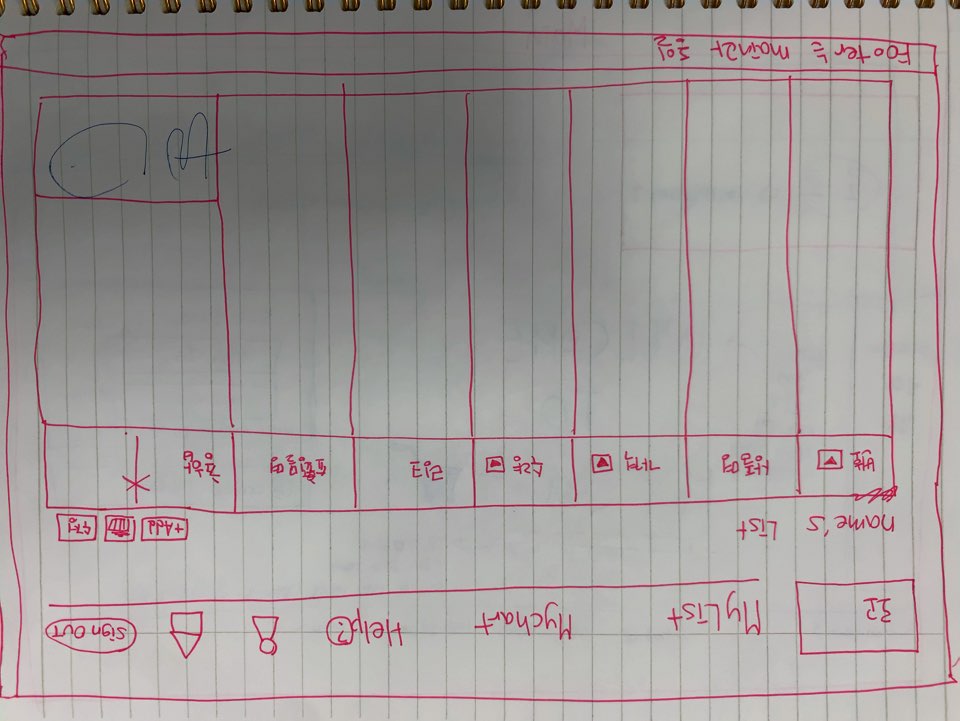 로고 MyList Mychart Help? Sign OUT
name's List +Add 수정
번호 상품명 가격 수량 링크 쇼핑몰명 총합
Footer는 main과 동일